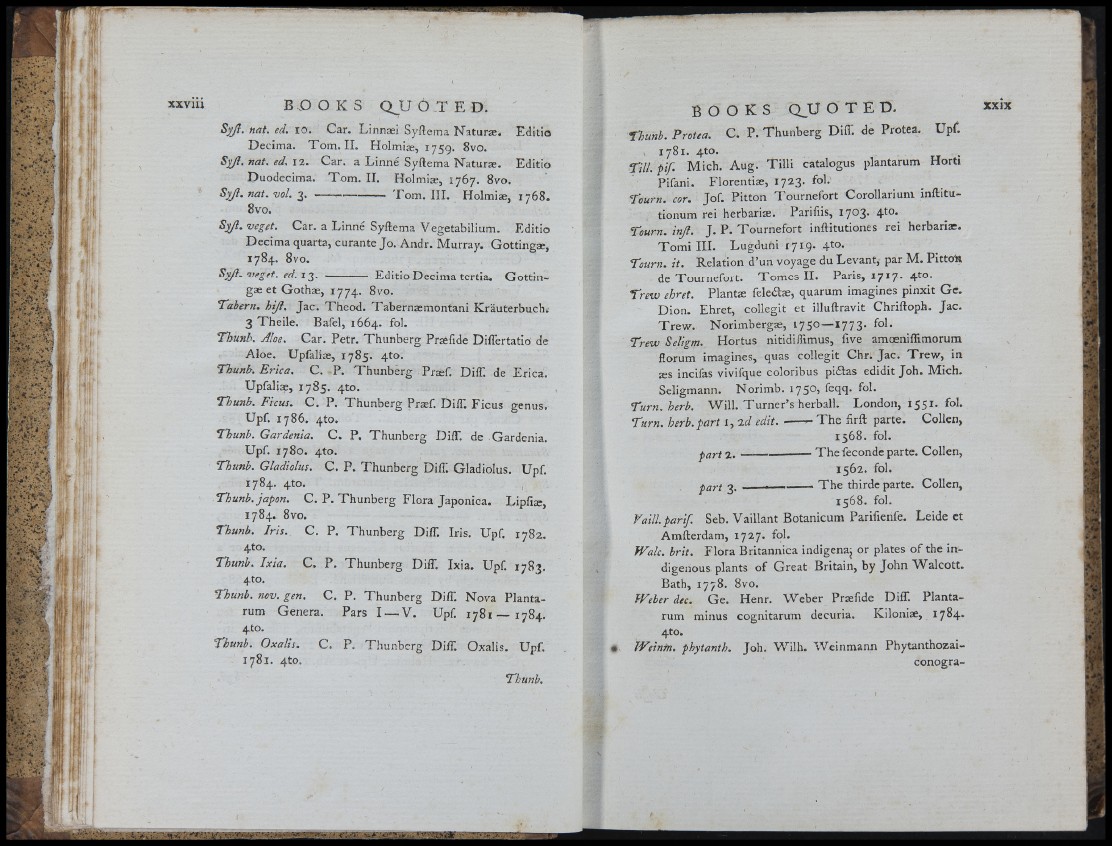 xxviii BOOKS QUOTED.
Syſt. nat. ed. 10. Car. Linnæi Syſtema Naturæ. Editio
Decima. Tom. II. Holmiæ, 1759. 8vo.
Syſt. nat. ed. 12. Car. a Linné Syſtema Naturæ. Editio
Duodecima. Tom. II. Holmiæ, 1767. 8vo.
Syſt. nat. vol. 3. ———— Tom. III. Holmiæ, 1768.
8vo.
Syſt. veget. Car. a Linné Syſtema Vegetabilium. Editio
Decima quarta, curante Jo. Andr. Murray. Gottingæ,
1784. 8vo.
Syſt. veget. ed. 13. ——— Editio Decima tertia. Gottin-
gæ et Gothæ, 1774. 8vo.
Tabern. hiſt. Jac. Theod. Tabernæmontani Kräuterbuch.
3 Theile. Baſel, 1664. fol.
Thunb. Aloe. Car. Petr. Thunberg Præſide Diſſertatio de
Aloe. Upſaliæ, 1785. 4to.
Thunb. Erica. C. P. Thunberg Præſ. Diſſ. de Erica.
Upſaliæ, 1785. 4to.
Thunb. Ficus. C. P. Thunberg Præſ. Diſſ. Ficus genus.
Upſ. 1786. 4to.
Thunb. Gardenia. C. P. Thunberg Diſſ. de Gardenia.
Upſ. 1780. 4to.
Thunb. Gladiolus. C. P. Thunberg Diſſ. Gladiolus. Upſ.
1784. 4to.
Thunb. japon. C. P. Thunberg Flora Japonica. Lipſiæ,
1784. 8vo.
Thunb. Iris. C. P. Thunberg Diſſ. Iris. Upſ. 1782.
4to.
Thunb. Ixia. C. P. Thunberg Diſſ. Ixia. Upſ. 1783.
4to.
Thunb. nov. gen. C. P. Thunberg Diſſ. Nova Planta-
rum Genera. Pars I—V. Upſ. 1781 — 1784.
4to.
Thunb. Oxalis. C. P. Thunberg Diſſ. Oxalis. Upſ.
1781. 4to.
Thunb.
BOOKS QUOTED. xxix
Thunb. Protea. C. P. Thunberg Diſſ. de Protea. Upſ.
1781. 4to.
Till. piſ. Mich. Aug. Tilli catalogus plantarum Horti
Piſani. Florentiæ, 1723. fol.
Tourn. cor. Joſ. Pitton Tournefort Corollarium inſtitu-
tionum rei herbariæ. Pariſiis, 1703. 4to.
Tourn. inſt. J. P. Tournefort inſtitutiones rei herbariæ.
Tomi III. Lugduni 1719. 4to.
Tourn. it. Relation d'un voyage du Levant, par M. Pitton
de Tournefort. Tomes II. Paris, 1717. 4to.
Trew ehret. Plantæ ſelectæ, quarum imagines pinxit Ge.
Dion. Ehret, collegit et illuſtravit Chriſtoph. Jac.
Trew. Norimbergæ, 1750—1773. fol.
Trew Seligm. Hortus nitidiſſimus, ſive amœniſſimorum
florum imagines, quas collegit Chr. Jac. Trew, in
æs inciſas viviſque coloribus pictas edidit Joh. Mich.
Seligmann. Norimb. 1750, ſeqq. fol.
Turn. herb. Will. Turner's herball. London, 1551. fol.
Turn. herb. part 1, 2d edit. —— The firſt parte. Collen,
1568. fol.
part 2. ———— The ſeconde parte. Collen,
1562. fol.
part 3. ———— The thirde parte. Collen,
1568. fol.
Vaill. pariſ. Seb. Vaillant Botanicum Pariſienſe. Leide et
Amſterdam, 1727. fol.
Walc. brit. Flora Britannica indigena, or plates of the in-
digenous plants of Great Britain, by John Walcott.
Bath, 1778. 8vo.
Weber dec. Ge. Henr. Weber Præſide Diſſ. Planta-
rum minus cognitarum decuria. Kiloniæ, 1784.
4to.
Weinm. phytanth. Joh. Wilh. Weinmann Phytanthozai-
conogra-